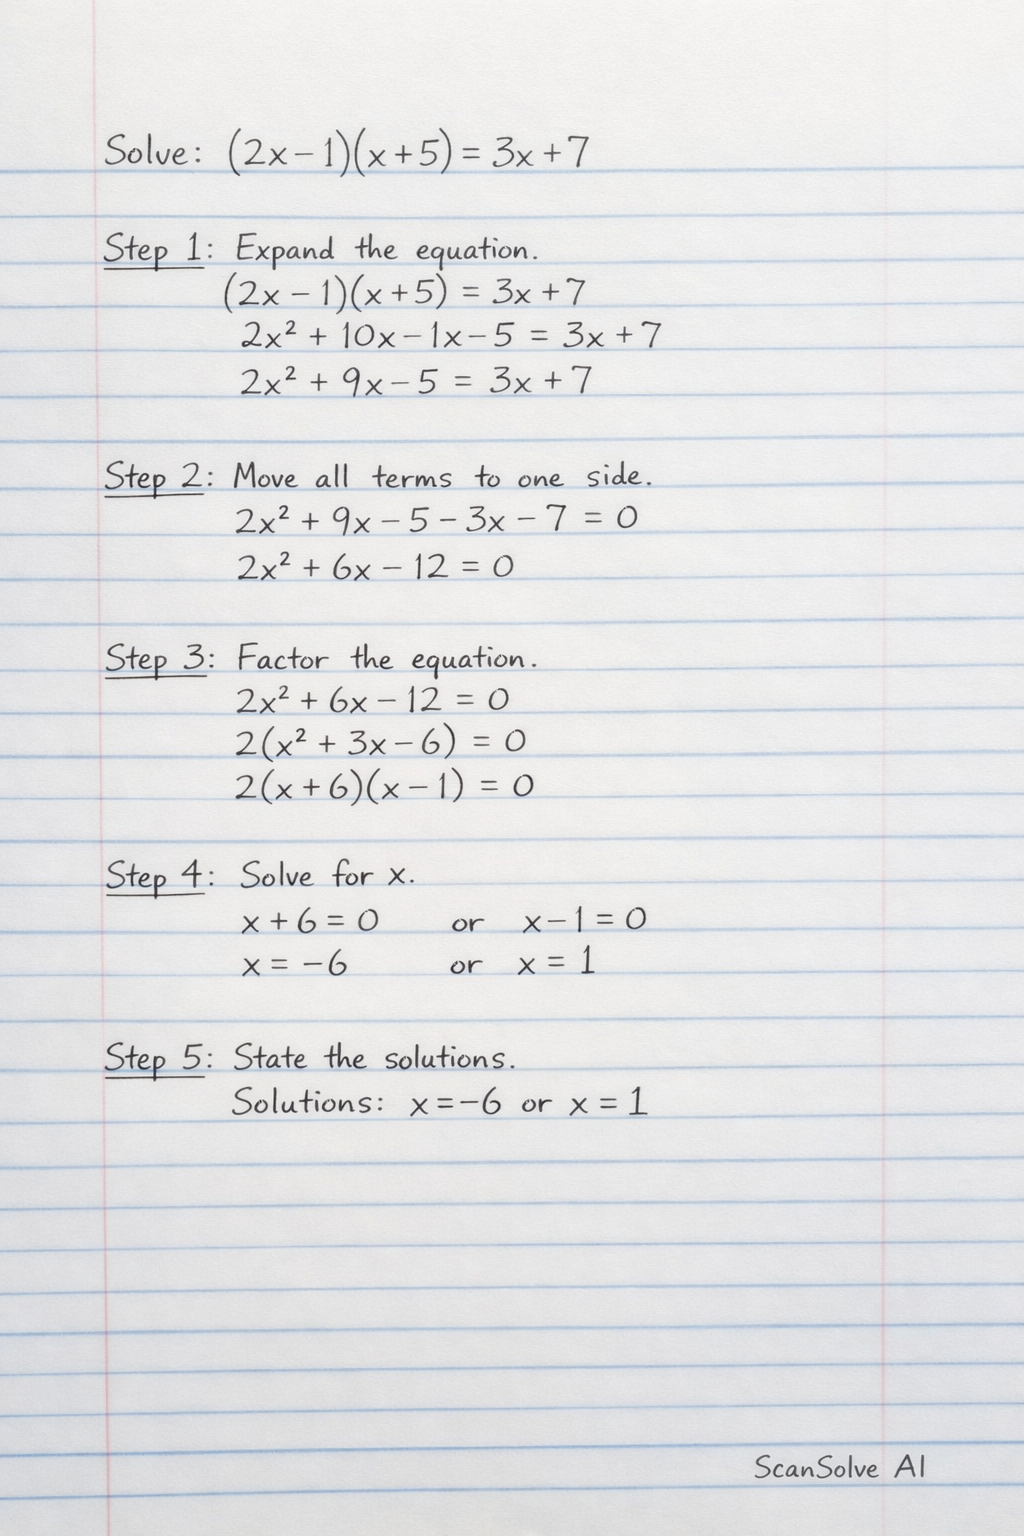 Solve: (2x-1)(x+5) = 3x+7
Step 1: Expand the equation.
(2x - 1)(x+5) = 3x+7
2x² + 10x-1x-5 = 3x+7
2x² + 9x-5 = 3x+7
Step 2: Move all terms to one side.
2x² + 9x - 5 - 3x - 7 = 0
2x² + 6x - 12 = 0
Step 3: Factor the equation.
2x² + 6x - 12 = 0
2(x² + 3x-6) = 0
2(x+6)(x-1) = 0
Step 4: Solve for x.
x+6=0 or x-1=0
x=-6 or x=1
Step 5: State the solutions.
Solutions: x=-6 or x=1
ScanSolve AI